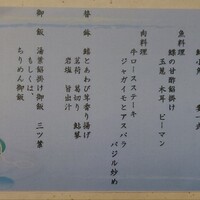 魚料理
の甘酢餡掛け
玉葱 木耳 ピーマン
肉料理
牛ロースステーキ
ジャガイモとアスパラ
バジル炒め
鉢 鱧とあわび茸香り揚げ
茗荷 葛切り
岩塩 旨出汁
御飯 湯葉餡掛け御飯 三ツ葉
もしくは、
ちりめん御飯